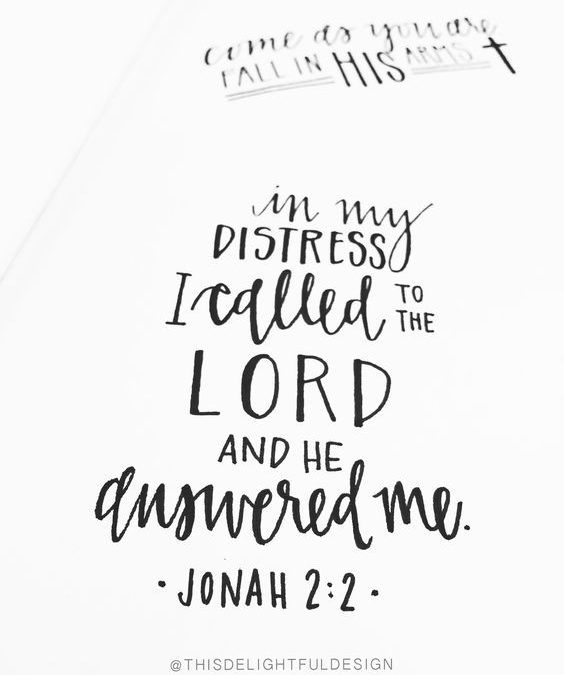 come as you are
FALL IN HIS ARMS
in my
DISTRESS
I called TO THE
LORD
AND HE
answered me.
· JONAH 2:2 ·
@THISDELIGHTFULDESIGN